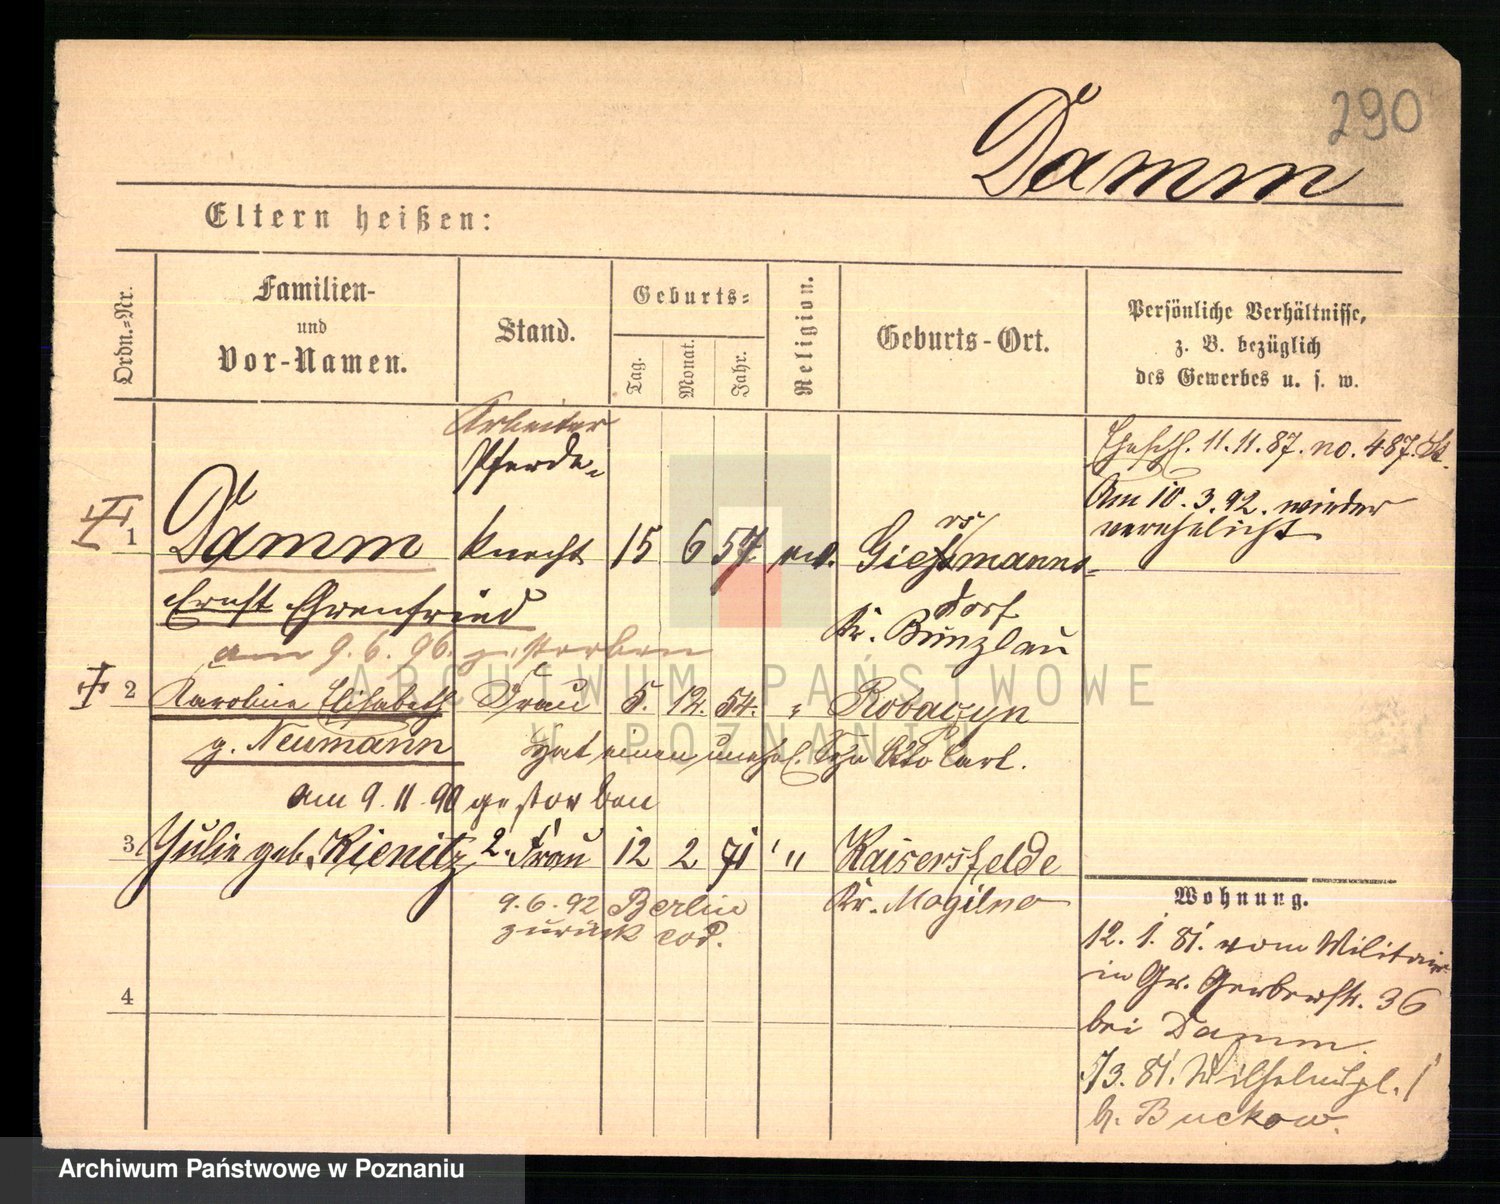 290
Damm
Eltern heißen:
Ordn.=Nr.
Familien-
und
Vor-Namen.
Stand.
Geburts=
Tag.
Monat.
Jahr.
Religion.
Geburts-Ort.
Persönliche Verhältnisse,
z. B. bezüglich
des Gewerbes u. s. w.
Arbeiter
Pferde-
1 Damm knecht 15 6 57 ev. Giessmanns-
dorf
Kr. Bunzlau
Ernst Ehrenfried
am 9.6.96. gestorben
Eheschl. 11.11.87. no. 487.
Am 10.3.92. wieder
verehelicht
2 Karoline Elisabeth Frau 5. 12. 54. "
g. Neumann
hat einen unehel. Otto Carl.
am 9.11.90 gestorben
3 Julie geb. Kienitz 2. Frau 12 2 71 " Kaisersfelde
Kr. Mogilno
9.6.92 Berlin
zurück eod.
4
Wohnung.
12. 1. 81. vom Militair
in Gr. Gerberstr. 36
bei Damm.
Wilhelmspl. 1
b. Buckow.
ARCHIWUM PAŃSTWOWE
W POZNANIU
Archiwum Państwowe w Poznaniu